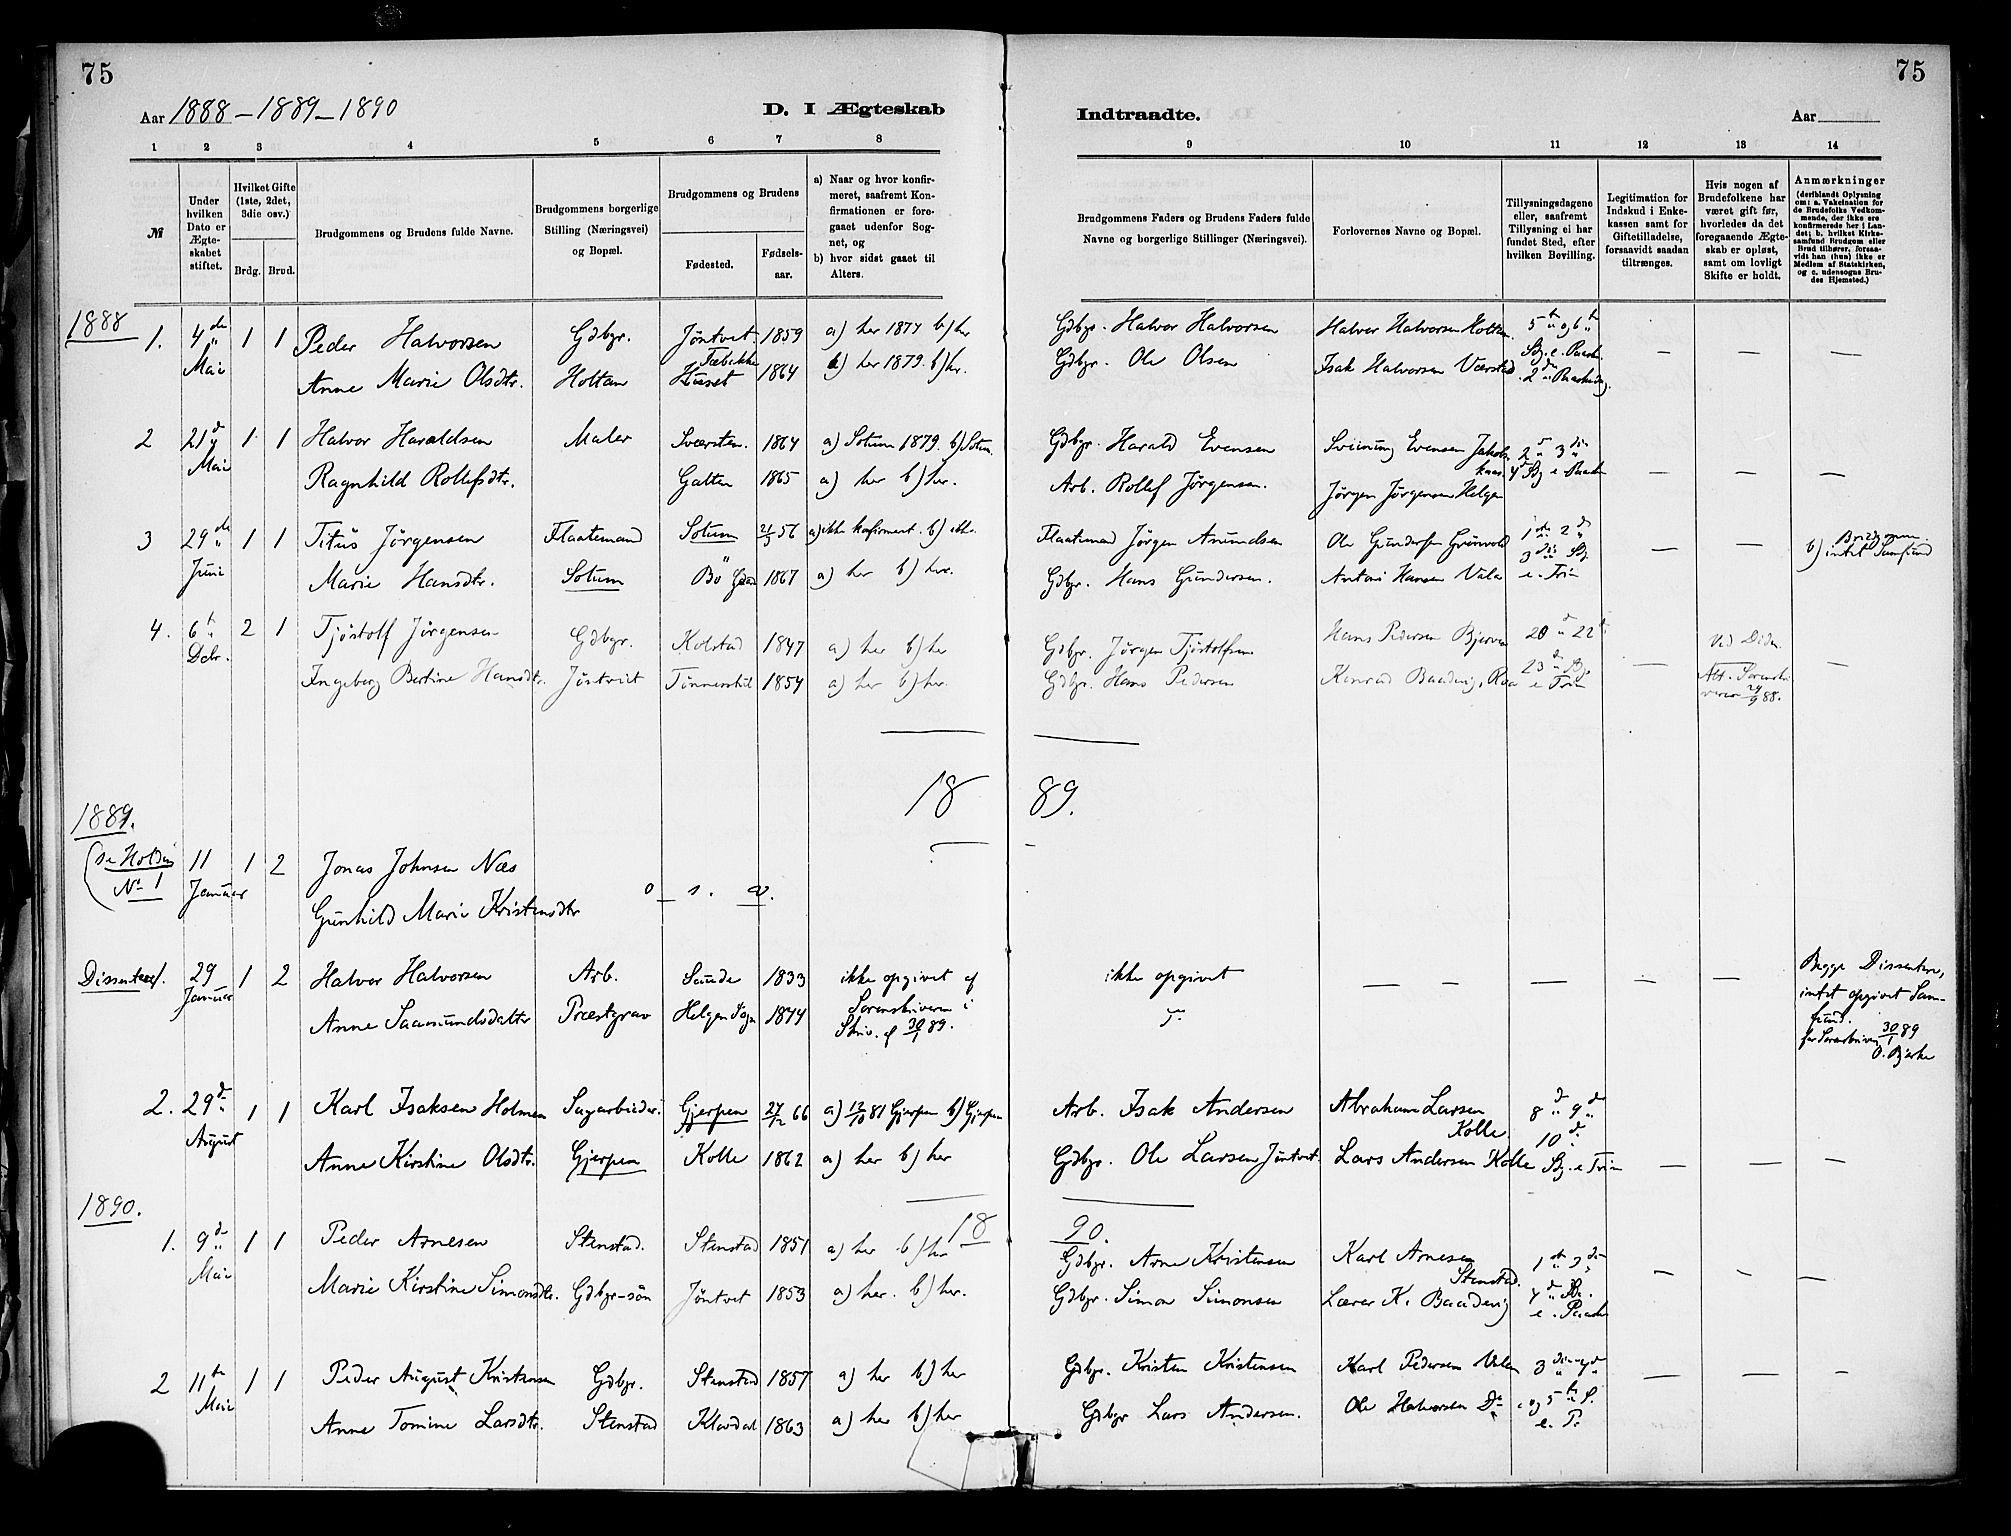 75
75
Aar 1888 - 1889 - 1890
D. I Ægteskab
Indtraadte.
Aar
1 2 3 4 5 6 7 8 9 10 11 12 13 14
№
Under hvilken Dato er Ægteskabet stiftet.
Hvilket Gifte (1ste, 2det, 3die osv.)
Brdg. Brud.
Brudgommens og Brudens fulde Navne.
Brudgommens borgerlige Stilling (Næringsvei) og Bopæl.
Brudgommens og Brudens
Fødested.
Fødselsaar.
a) Naar og hvor konfirmeret, saafremt Konfirmationen er foregaaet udenfor Sognet, og
b) hvor sidst gaaet til Alters.
Brudgommens Faders og Brudens Faders fulde Navne og borgerlige Stillinger (Næringsvei).
Forlovernes Navne og Bopæl.
Tillysningsdagene eller, saafremt Tillysning ei har fundet Sted, efter hvilken Bevilling.
Legitimation for Indskud i Enkekassen samt for Giftetilladelse, forsaavidt saadan tiltrænges.
Hvis nogen af Brudefolkene har været gift før, hvorledes da det foregaaende Ægteskab er opløst, samt om lovligt Skifte er holdt.
Anmærkninger (deriblandt Oplysning om: a. Vakcination for de Brudefolks Vedkommende, der ikke ere konfirmerede her i Landet; b. hvilket Kirkesamfund Brudgom eller Brud tilhører, forsaavidt han (hun) ikke er Medlem af Statskirken, og c. udensogns Brudes Hjemsted.)
1888
1. 4de Mai 1 1 Peder Halvorsen Gdbgr. Jøntvet 1859 a) her 1874 b) her Gdbgr. Halvor Halvorsen Halvor Halvorsen Holtan 5t og 6t
Anne Marie Olsdtr. Holtan Huset 1864 a) her 1879. b) her. Gdbgr. Ole Olsen Isak Halvorsen Værstad
2 21d Mai 1 1 Halvor Haraldsen Maler Sværsten. 1864 a) Solum 1879. b) Solum Gdbgr. Harald Evensen Sveinung Evensen 2 3
Ragnhild Rollefsdtr. Galten 1865 a) her b) her. Arb. Rollef Jørgensen. Jørgen Jørgensen Helgen
3 29de Juni 1 1 Titus Jørgensen Flaatemand Solum 21/3 56 a) ikke konfirmert. b) ikke. Flaatemand Jørgen Amundsen Ole Gundersen Grønvold 1 2d 3die b) Brudgom. intet Samfund
Marie Hansdtr. Solum Bö 1867 a) her b) her. Gdbgr. Hans Gundersen. Antoni Hansen Valen e. Trin
4. 6t Debr. 2 1 Tjøstolf Jørgensen Gdbgr. Kolstad 1847 a) her b) her Gdbgr. Jørgen Tjøstolfsen Hans Pedersen Bjerven 20 22 Ved Døden
Ingeborg Bertine Hansdtr. Jøntvet 1854 a) her b) her. Gdbgr. Hans Pedersen Konrad Baadevig 23 e Trin Att. Sorenskriveren 24/9 88.
18 89.
1889.
(Se Holden № 1 11 Januar 1 2 Jonas Johnsen Næs
Gunhild Marie Kristensdtr o. s. v.
Dissentere 1. 29 Januar 1 2 Halvor Halvorsen Arb. Saude 1833 ikke opgivet af Sorenskriveren i Skriv. af 30/1 89. ikke opgivet Begge Dissentere, intet opgivet Samfund. 30/1 89
Anne Saamundsdatter Præstgrav Helgen Sogn 1844 O. Bjerke
2. 29d August 1 1 Karl Isaksen Holmen Sagarbeider. Gjerpen 27/12 66 a) 12/10 81 Gjerpen b) Gjerpen Arb. Isak Andersen Abraham Larsen Kolle 8 9d
Anne Kirstine Olsdtr. Gjerpen Kolle 1862 a) her b) her Gdbgr. Ole Larsen Jøntvet. Lars Andersen Kolle 10 S. e Trin
1890. 18 90.
1. 9d Mai 1 1 Peder Arnesen Stenstad. Stenstad 1851 a) her b) her Gdbgr. Arne Kristensen Karl Arnesen Stenstad. 1 3
Marie Kirstine Simonsdtr. Gdbgr-søn Jøntvet 1853 a) her. b) her. Gdbgr. Simon Simonsen Lærer K. Baadevig 4 e. Paaske
2 11te Mai 1 1 Peder August Kristensen Gdbgr. Stenstad 1857 a) her b) her Gdbgr. Kristen Kristensen Karl Pedersen Valen 3
Anne Tomine Larsdtr. Stenstad Klovdal 1863 a) her b) her Gdbgr Lars Andersen. Ole Halvorsen Do og 5t S. e. P.